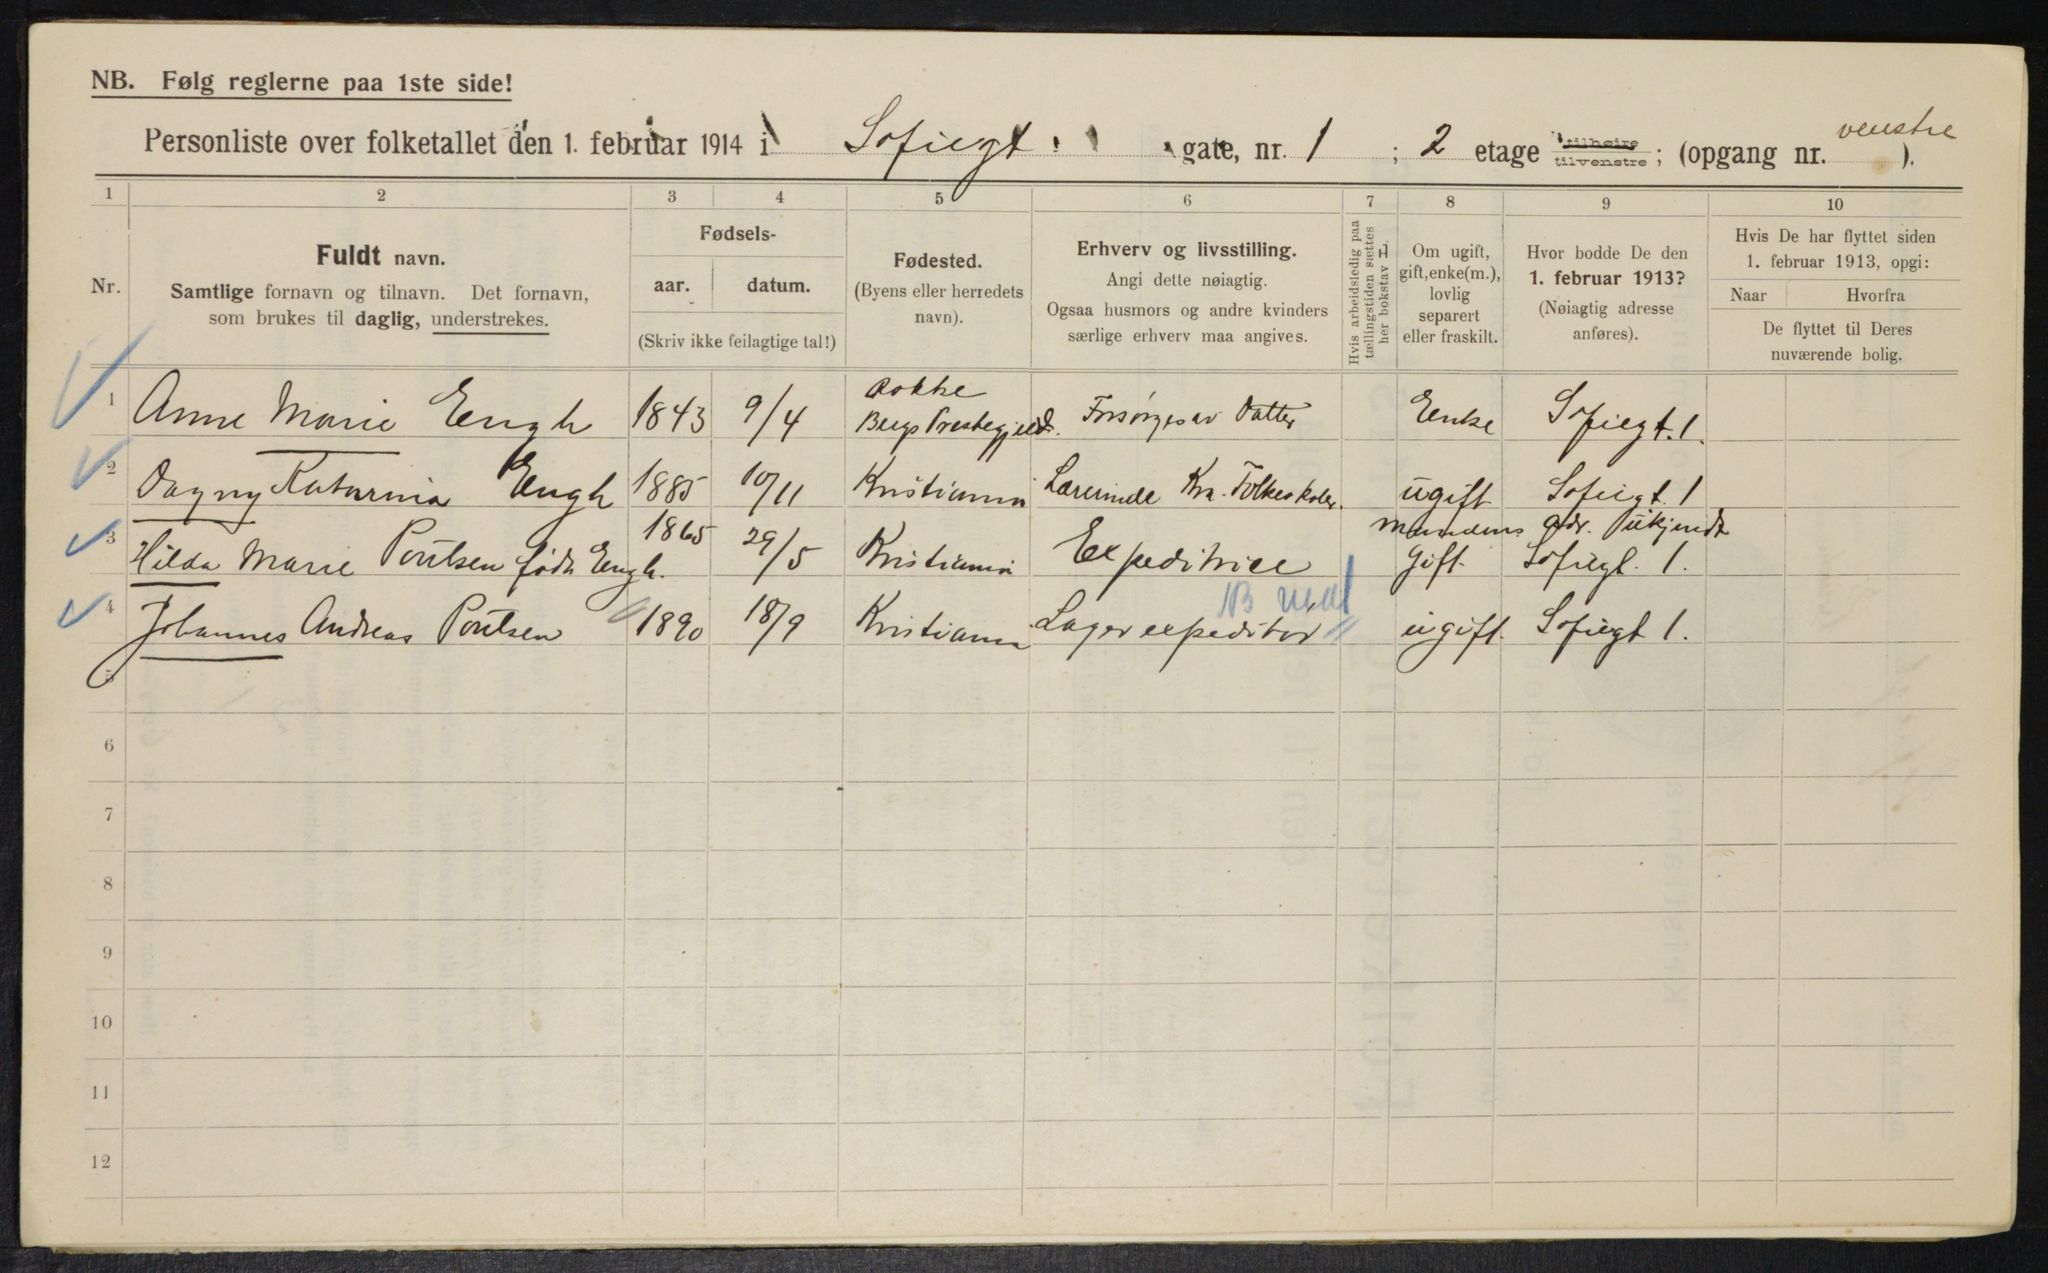 NB. Følg reglerne paa 1ste side!
Personliste over folketallet den 1. februar 1914 i Sofiegt. gate, nr. 1 ; 2 etage tilhøire tilvenstre ; (opgang nr. venstre ).
1 2 3 4 5 6 7 8 9 10
Nr.
Fuldt navn.
Samtlige fornavn og tilnavn. Det fornavn,
som brukes til daglig, understrekes.
Fødsels-
aar. datum.
(Skriv ikke feilagtige tal!)
Fødested.
(Byens eller herredets
navn).
Erhverv og livsstilling.
Angi dette nøiagtig.
Ogsaa husmors og andre kvinders
særlige erhverv maa angives.
Hvis arbeidsledig paa
tællingstiden sættes
her bokstav L.
Om ugift,
gift, enke(m.),
lovlig
separert
eller fraskilt.
Hvor bodde De den
1. februar 1913?
(Nøiagtig adresse
anføres).
Hvis De har flyttet siden
1. februar 1913, opgi:
Naar Hvorfra
De flyttet til Deres
nuværende bolig.
1 Anne Marie Engh 1843 9/4 Rokke Bergs Prestegjeld. Forsørges av Datter Enke Sofiegt. 1.
2 Dagny Katarina Engh 1885 10/11 Kristiania Lærerinde Kra. Folkeskoler. ugift Sofiegt 1
Mandens adr. Ukjendt
3 Hilda Marie Poulsen født Engh. 1865 29/5 Kristiania Expeditrice Gift. Sofiegt. 1.
4 Johannes Andreas Poulsen 1890 18/9 Kristiania Lagerexpeditør ugift. Sofiegt 1.
5
6
7
8
9
10
11
12